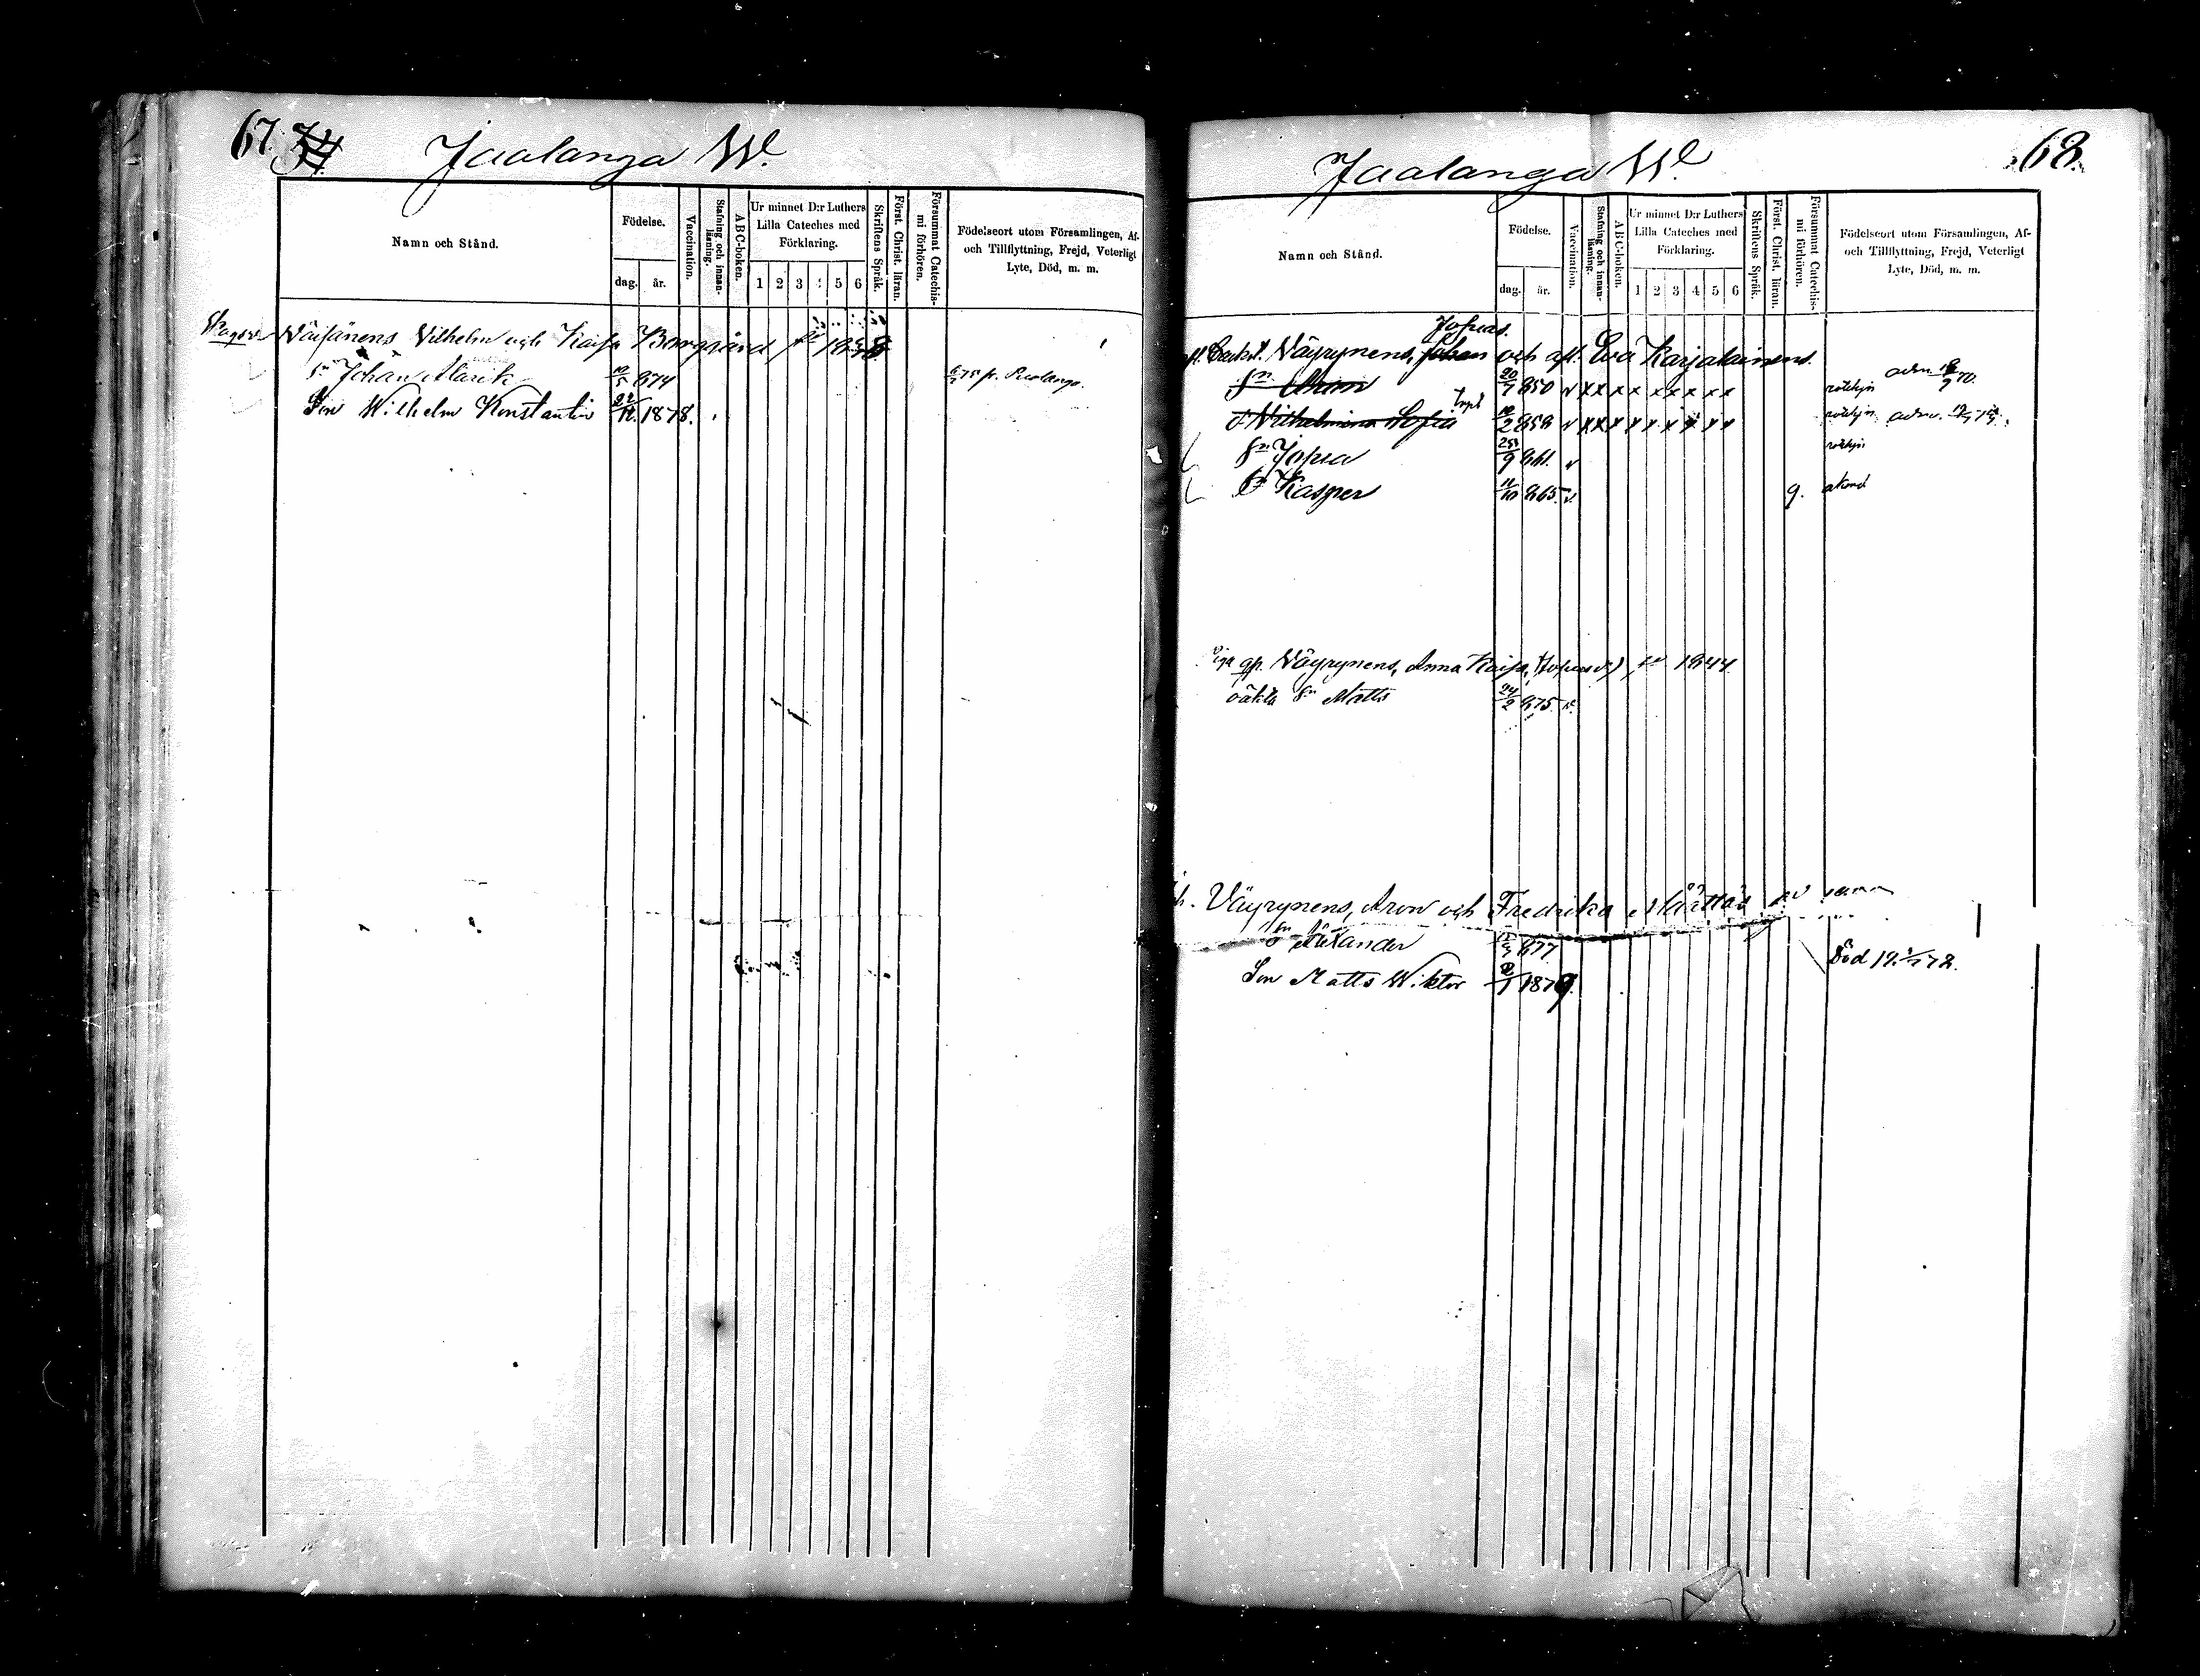 67.
Jaalanga Wl.
Namn och Stånd.
Födelse.
dag.
år.
Vaccination.
Stafning och innanläsning.
ABC-boken.
Ur minnet D:r Luthers
Lilla Cateches med
Förklaring.
1 2 3 4 5 6
Skriftens Språk.
Först. Christ. läran.
Försummat Catechismi förhören.
Födelseort utom Församlingen, Af-
och Tillflyttning, Frejd, Veterligt
Lyte, Död, m. m.
Väisänens Vilhelm och Kaisa Borggård
Sn Johan Alarik 874
Son Wilhelm Konstantin 22/12 1878.
68.
Jaalanga Wl
Namn och Stånd.
Födelse.
dag.
år.
Vaccination.
Stafning och innanläsning.
ABC-boken.
Ur minnet D:r Luthers
Lilla Cateches med
Förklaring.
1 2 3 4 5 6
Skriftens Språk.
Först. Christ. läran.
Försummat Catechismi förhören.
Födelseort utom Församlingen, Af-
och Tillflyttning, Frejd, Veterligt
Lyte, Död, m. m.
Joseas.
Väyrynens, Johan och afl. Eva Karjalainens.
Sn Aron 20/7 850 v x x x x x x x x
Wilhelmina Sofia 858 v x x x x x x x x
Sn Josea 25/9 861. v
Sn Kasper 11/10 865 v. 9.
Väyrynens, Anna Kaisa, 1844
oäkta Sn Matts 24/2 875 v.
Väyrynens, Aron och Fredrika Määttäs
Sn Alexander 877 Död
Son Matts Wiktor 1879.